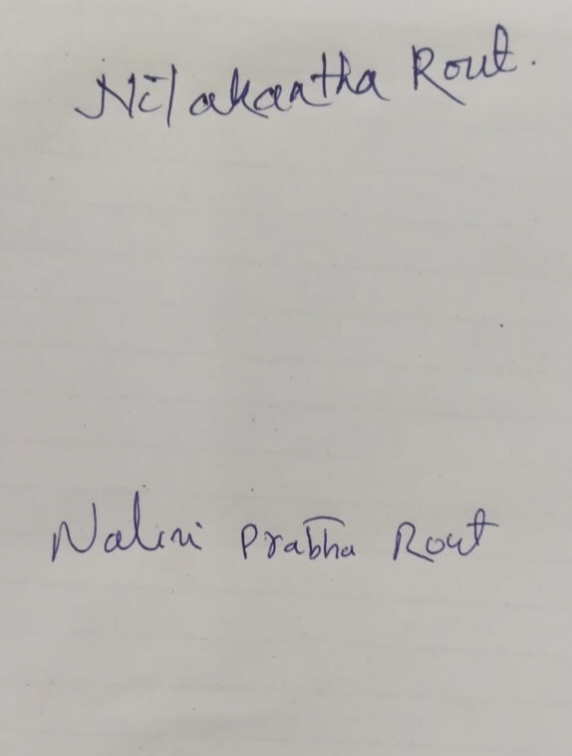 Nilakantha Rout.
Nalini Prabha Rout